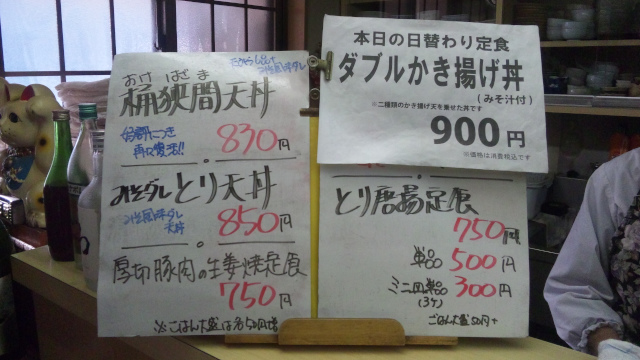 おけ はざま
桶狭間天丼
好評につき
再び復活!!
830円
みそダレとり天丼
みそ風味ダレ
天丼
850円
厚切豚肉の生姜焼定食
750円
※ごはん大盛は各50円増
本日の日替わり定食
ダブルかき揚げ丼
(みそ汁付)
※二種類のかき揚げ天を乗せた丼です
900円
※価格は消費税込です
とり唐揚定食
750円
単品 500円
ミニ四単品 300円
(3ケ)
ごはん大盛50円+